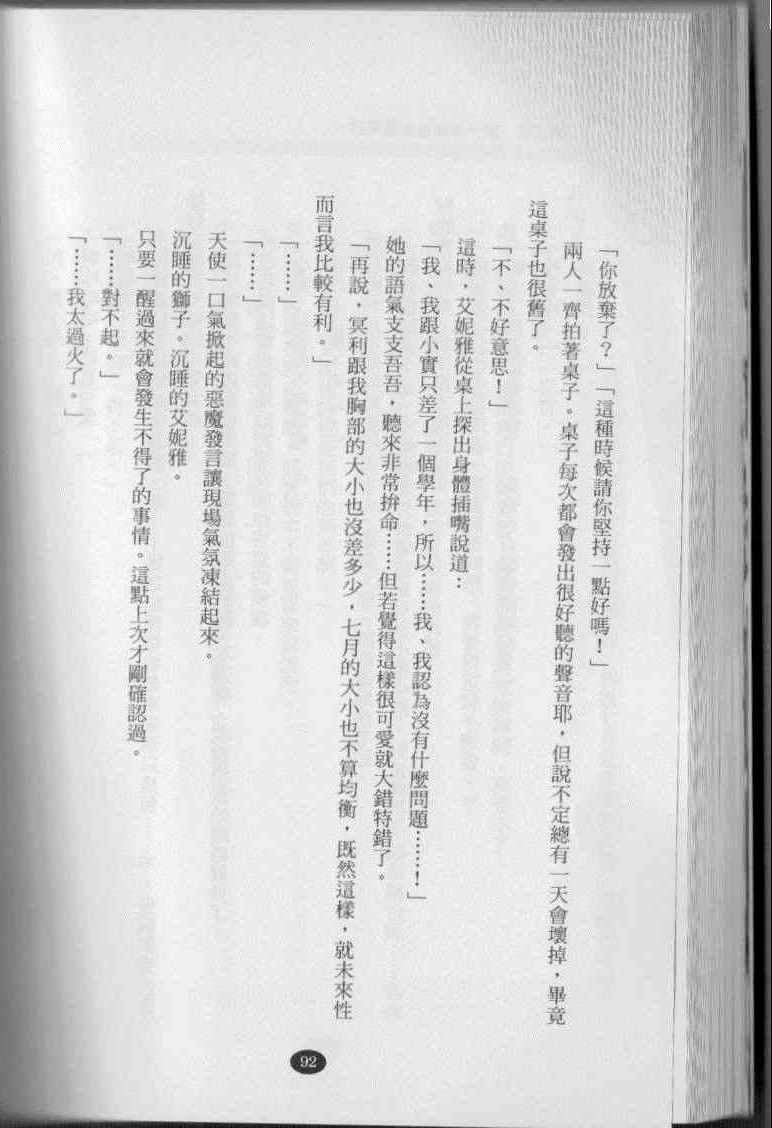 「你放棄了？」「這種時候請你堅持一點好嗎！」
兩人一齊拍著桌子。桌子每次都會發出很好聽的聲音耶，但說不定總有一天會壞掉，畢竟
這桌子也很舊了。
「不、不好意思！」
這時，艾妮雅從桌上探出身體插嘴說道：
「我、我跟小實只差了一個學年，所以……我、我認為沒有什麼問題……！」
她的語氣支支吾吾，聽來非常拚命……但若覺得這樣很可愛就大錯特錯了。
「再說，冥利跟我胸部的大小也沒差多少，七月的大小也不算均衡，既然這樣，就未來性
而言我比較有利。」
「……」
「……」
天使一口氣掀起的惡魔發言讓現場氣氛凍結起來。
沉睡的獅子。沉睡的艾妮雅。
只要一醒過來就會發生不得了的事情。這點上次才剛確認過。
「……對不起。」
「……我太過火了。」
92